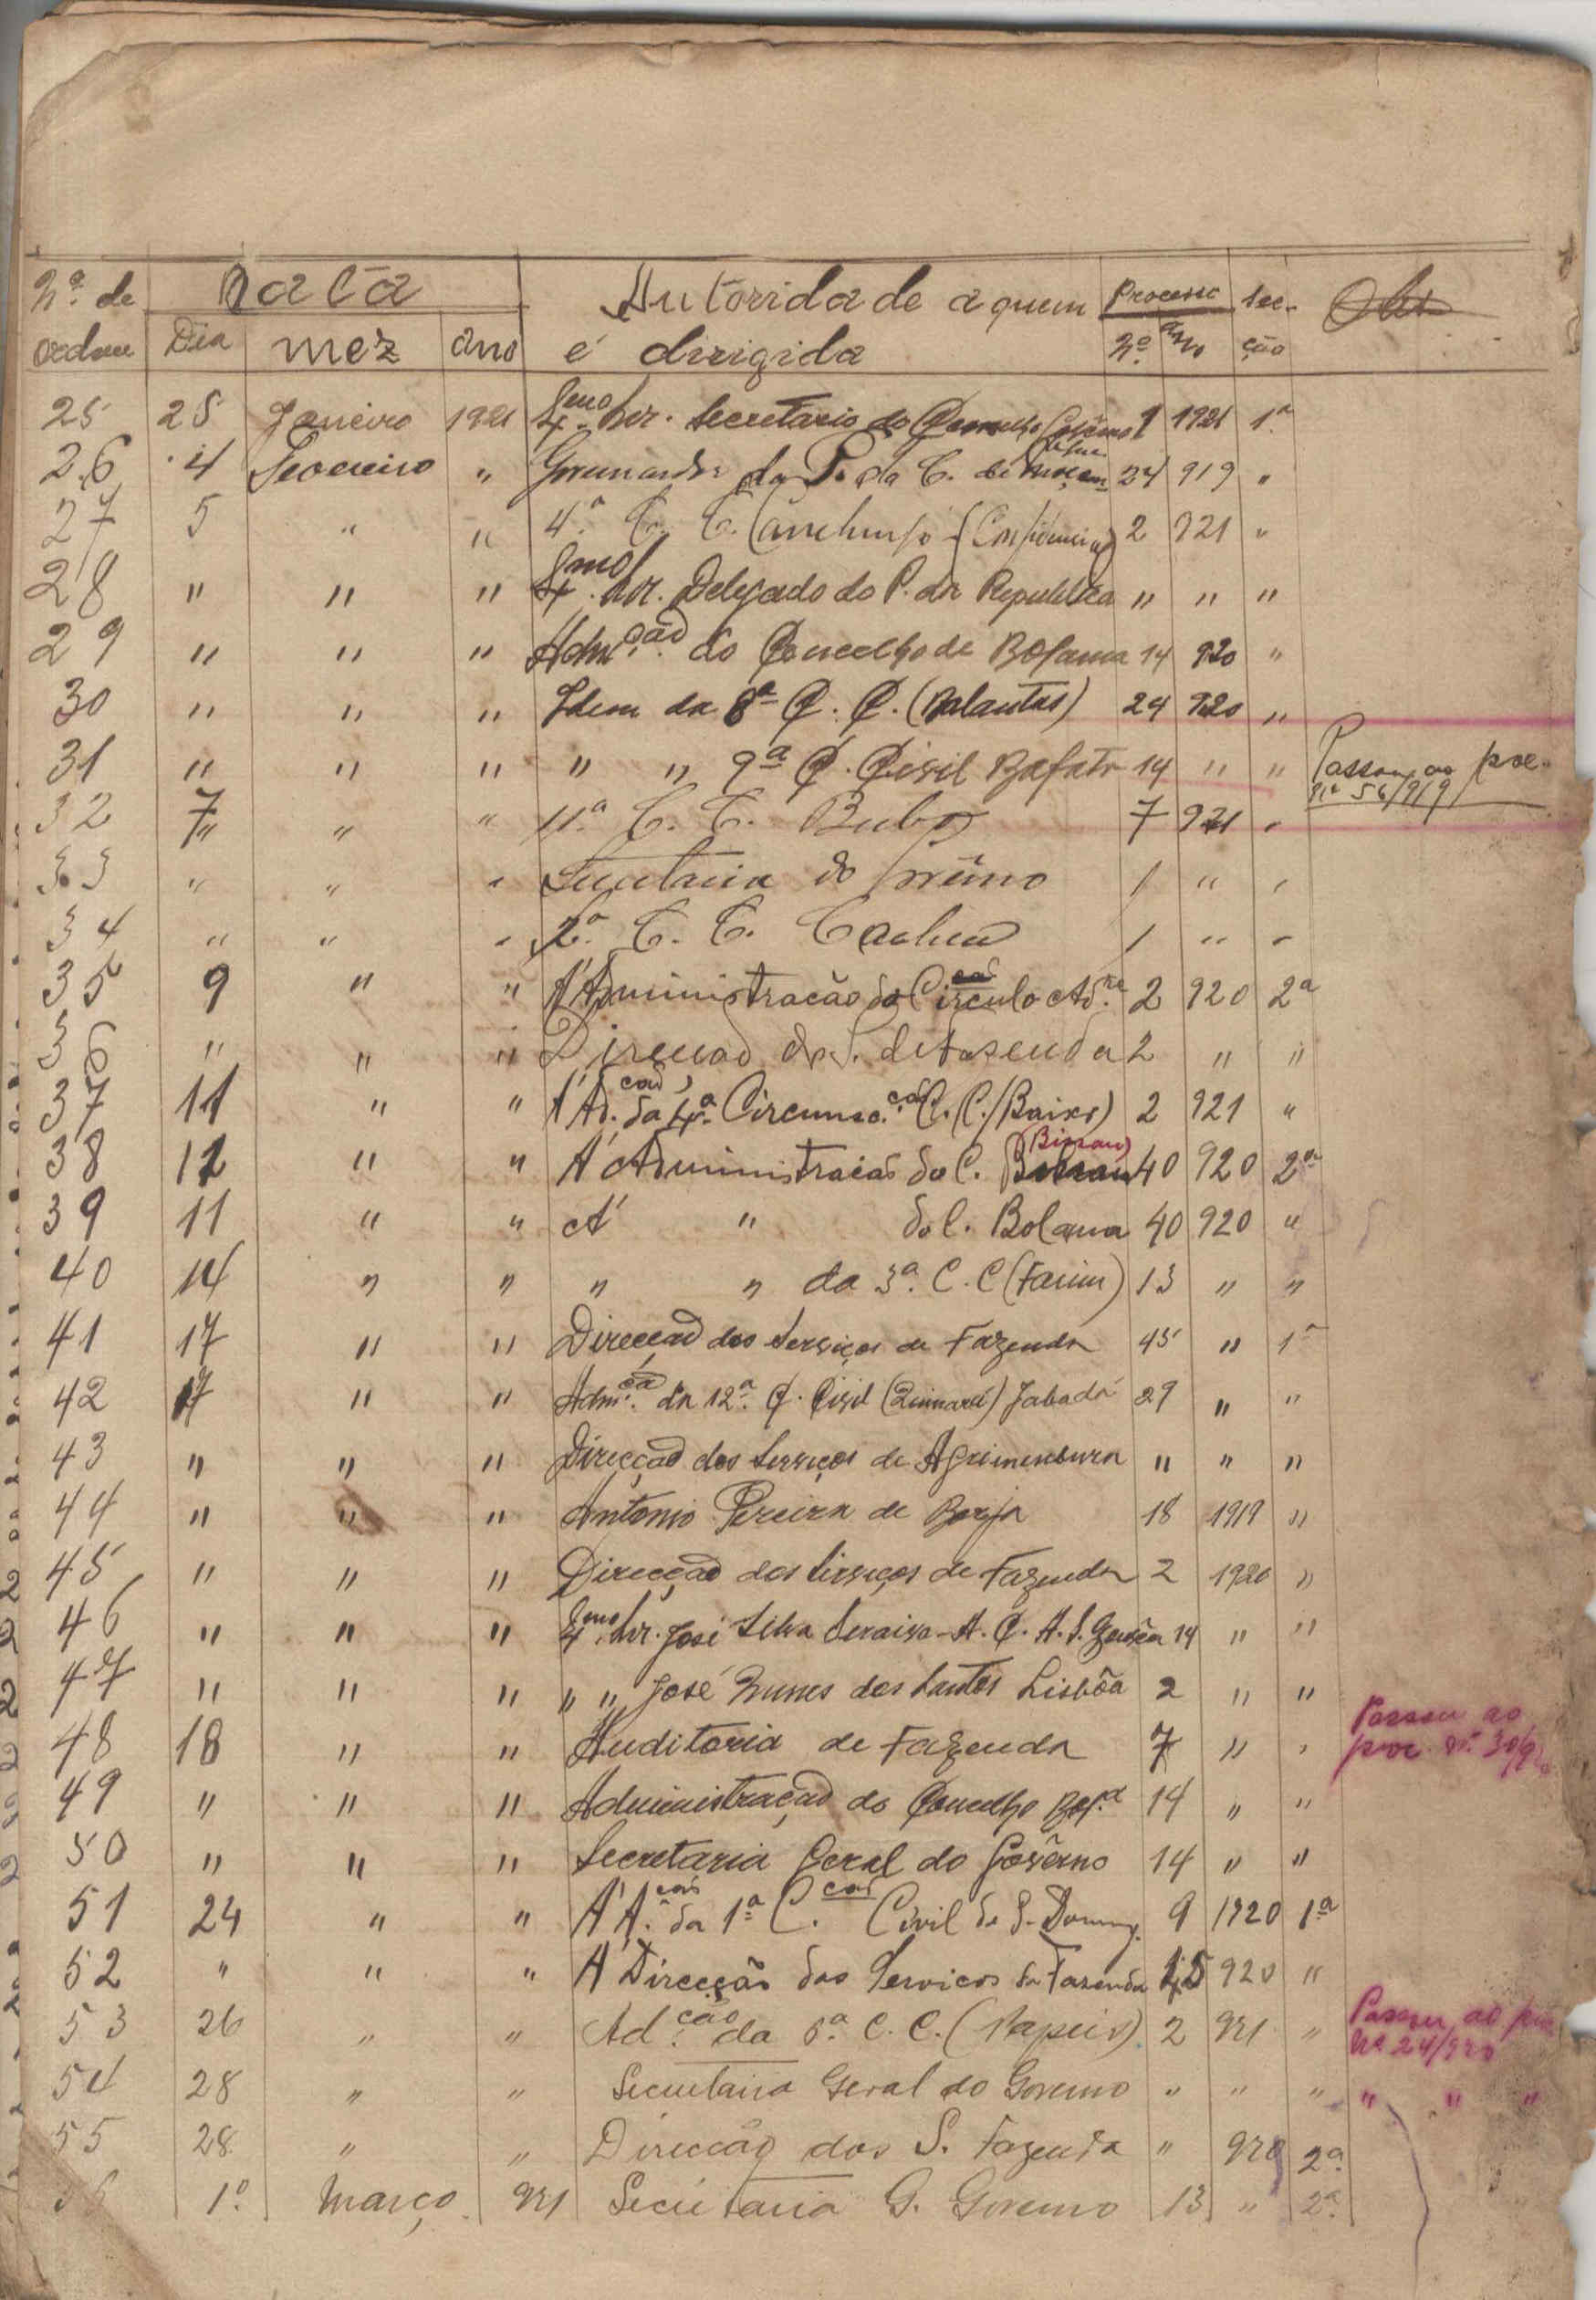 Nº de Data Autoridade a quem Processo Sec-
ordem Dia mez ano é dirigida Nº Ano ção Obs
25 25 Janeiro 1921 Sr. Secretario do Conselho 1 1921 1ª
26 4 Fevereiro " da P. da C. de 24 919 "
27 5 " " 4ª C. C. Canchungo 2 921 "
28 " " " Sr. Delegado do P. da Republica " " "
29 " " " Admção do Concelho de Bolama 14 920 "
30 " " " Idem da 8ª C. C. (Balantas) 24 920 "
31 " " " " " 9ª C. Civil Bafatá 14 " " Passou ao proc.
nº 56/919
32 7 " " 11ª C. C. Buba 7 921 "
33 " " " Secretaria do Governo 1 " "
34 " " " 2ª C. C. Cacheu 1 " "
35 9 " " Á Administracão do Circulo 2 920 2ª
36 " " " Direcção dos S. de Fasenda 2 " "
37 11 " " Á Ad.ção da 4ª Circunsc.ção C. (C./Baixo) 2 921 "
38 12 " " Á Administracão do C. (Bissau) 40 920 2ª
39 11 " " Á " do C. Bolama 40 920 "
40 14 " " " " da 3ª C. C (Farim) 13 " "
41 17 " " Direcção dos Serviços de Fazenda 45 " 1ª
42 17 " " Adm.ção da 12ª C. Civil (Quinará) Jabadá 29 " "
43 " " " Direcção dos Serviços de Agrimensura " " "
44 " " " António Pereira de Borja 18 1919 "
45 " " " Direcção dos Serviços de Fazenda 2 1920 "
46 " " " Sr. José Silva Seraiva - A. C. A. S. 14 " "
47 " " " " " José Nunes dos Santos Lisbôa 2 " "
48 18 " " Auditoria de Fazenda 7 " " Passou ao
proc. nº 30/
49 " " " Administração do Concelho Bol.ª 14 " "
50 " " " Secretaria Geral do Govêrno 14 " "
51 24 " " Á A.ção da 1ª C.ção Civil de S. Doming. 9 1920 1ª
52 " " " Á Direcção dos Servicos da Fazenda 15 920 "
53 26 " " Ad.ção da 6ª C. C. (Papeis) 2 921 " Passou ao proc
Nº 24/920
54 28 " " Secretaria Geral do Governo " " " " " "
55 28 " " Direcção dos S. Fazenda " 920 2ª
56 1º Março 921 Secretaria G. Governo 13 " 2ª